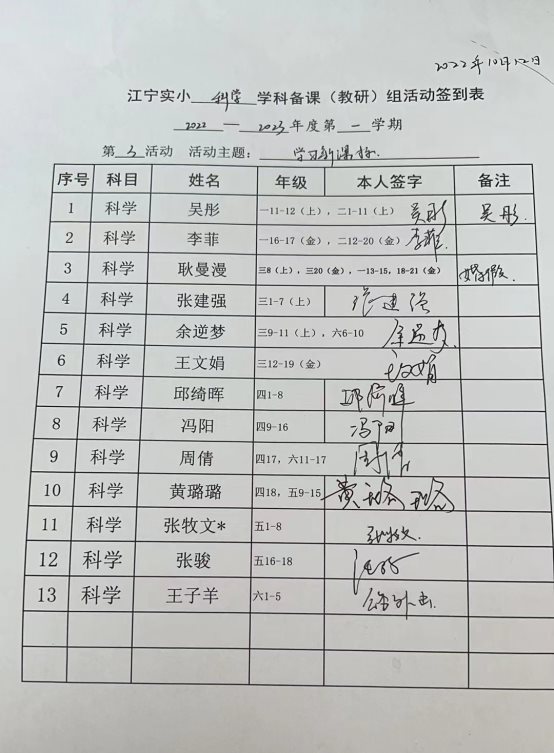 2022年10月12日
江宁实小 科学 学科备课（教研）组活动签到表
2022 — 2023 年度第 一 学期
第 3 活动 活动主题： 学习新课标.
序号 科目 姓名 年级 本人签字 备注
1 科学 吴彤 一11-12（上），二1-11（上） 吴彤 吴彤.
2 科学 李菲 一16-17（金），二12-20（金） 李菲
3 科学 耿曼漫 三8（上），三20（金），一13-15，18-21（金） 婚假.
4 科学 张建强 三1-7（上） 张建强
5 科学 余逆梦 三9-11（上），六6-10
6 科学 王文娟 三12-19（金） 王文娟
7 科学 邱绮晖 四1-8 邱绮晖
8 科学 冯阳 四9-16 冯阳
9 科学 周倩 四17，六11-17 周倩
10 科学 黄璐璐 四18，五9-15 黄璐璐
11 科学 张牧文* 五1-8 张牧文
12 科学 张骏 五16-18 张骏
13 科学 王子羊 六1-5